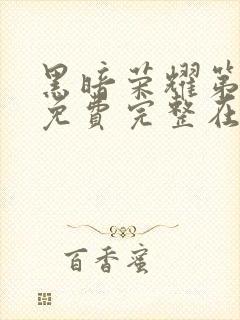 黑暗荣耀第
免费完整在
百香蜜